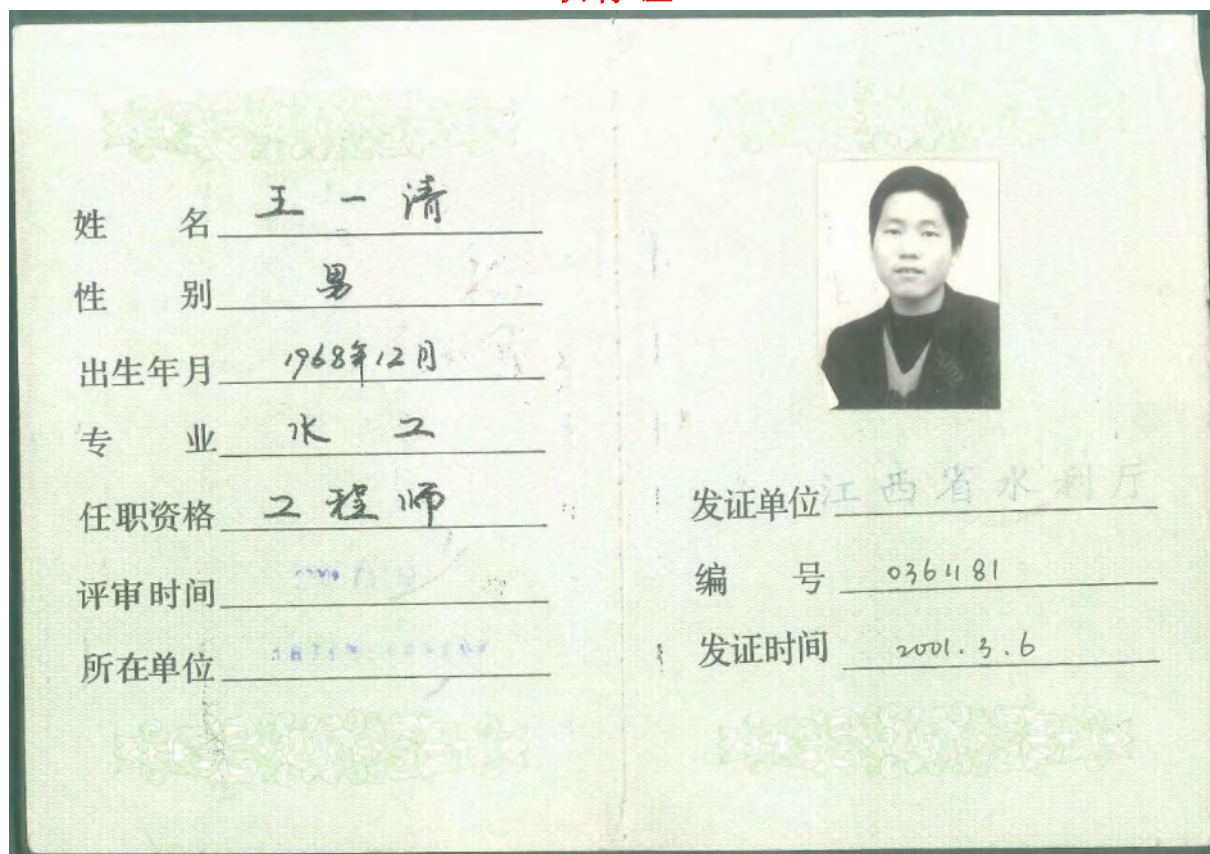 姓 名 王一清
性 别 男
出生年月 1968年12月
专 业 水 工
任职资格 工程师
评审时间
所在单位
发证单位 江西省水利厅
编 号 0361181
发证时间 2001.3.6